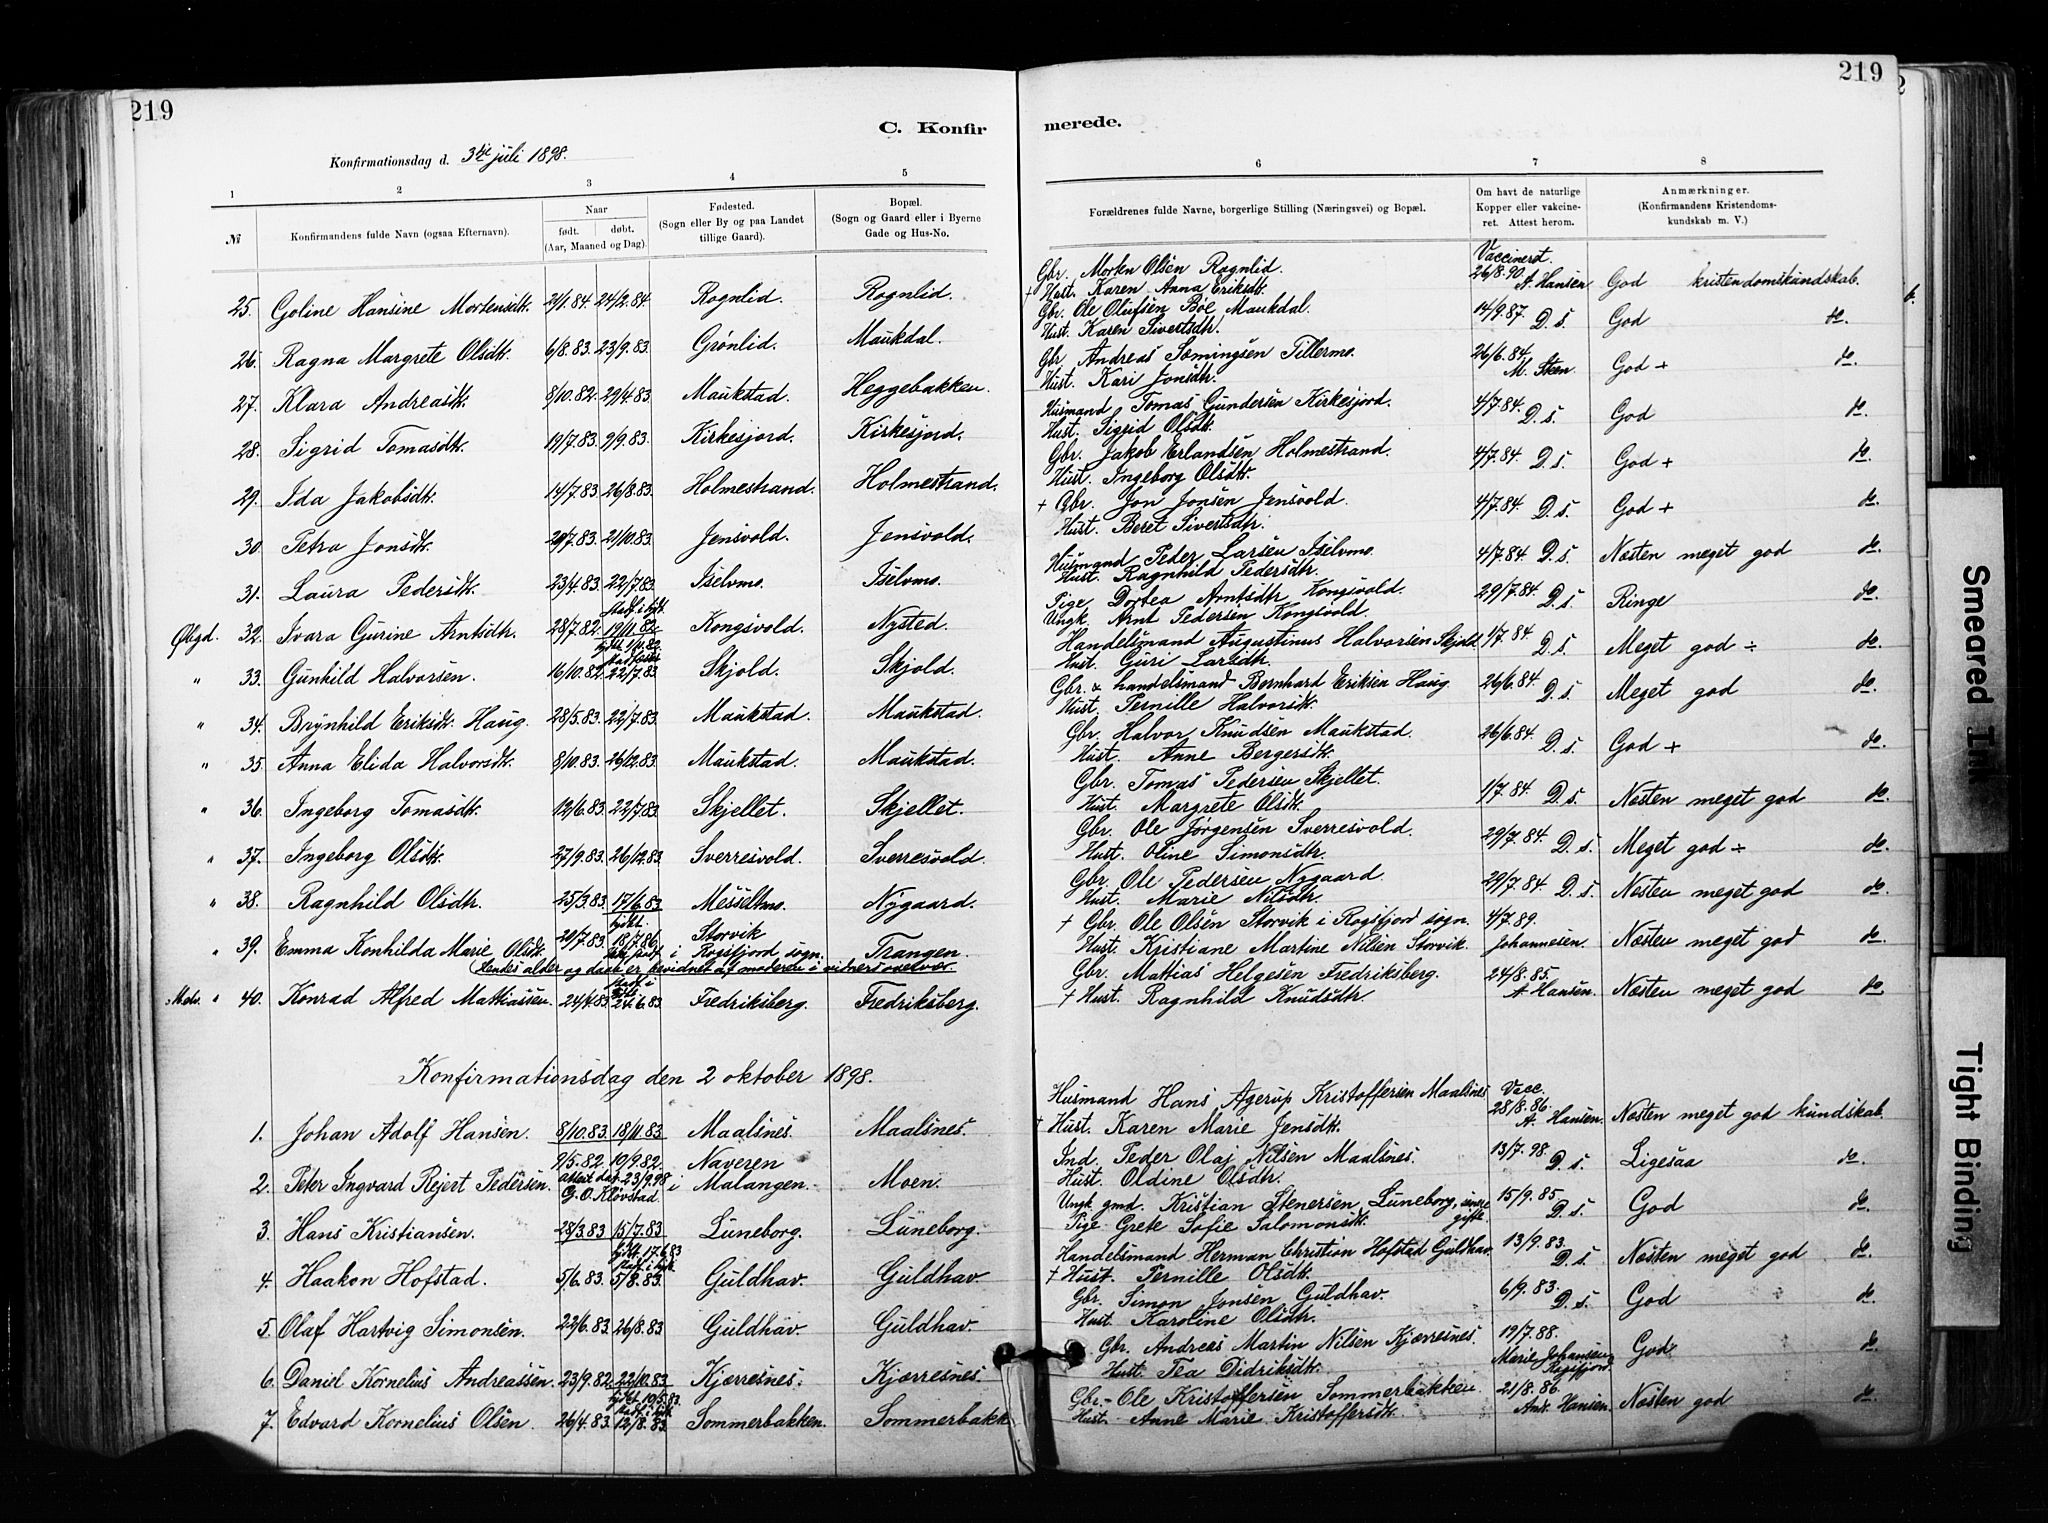 219
219
C. Konfirmerede.
Konfirmationsdag d. 3die juli 1898.
1 2 3 4 5 6 7 8
№ Konfirmandens fulde Navn (ogsaa Efternavn). Naar født. døbt. (Aar, Maaned og Dag). Fødested. (Sogn eller By og paa Landet tillige Gaard). Bopæl. (Sogn og Gaard eller i Byerne Gade og Hus-No. Forældrenes fulde Navne, borgerlige Stilling (Næringsvei) og Bopæl. Om havt de naturlige Kopper eller vakcineret. Attest herom. Anmærkninger. (Konfirmandens Kristendomskundskab m. V.)
25. Goline Hansine Mortensdtr. 21/1.84 24/2.84 Rognlid. Rognlid. Gbr. Morten Olsen Rognlid. † Hust. Karen Anna Eriksdtr. Vaccineret. 26/8.90. A. Hansen God kristendomskundskab.
26. Ragna Margrete Olsdtr. 6/8.83. 23/9.83. Grønlid. Maukdal. Gbr. Ole Olufsen Bøe Maukdal. Hust. Karen Sivertsdtr. 14/9.87. D. s. God do.
27. Klara Andreasdtr. 8/10.82. 29/4.83. Maukstad. Heggebakken. Gbr. Andreas Sæmingsen Tillermo. Hust. Kari Jonsdtr. 26/6.84. M. Steen. God + do.
28. Sigrid Tomasdtr. 19/7.83. 9/9.83. Kirkesjord. Kirkesjord. Husmand Tomas Gundersen Kirkesjord. Hust. Sigrid Olsdtr. 4/7.84. D. s. God do.
29. Ida Jakobsdtr. 14/7.83. 26/8.83. Holmestrand. Holmestrand. Gbr. Jakob Erlandsen Holmestrand. Hust. Ingeborg Olsdtr. 4/7.84. D. s. God + do.
30. Petra Jonsdtr. 29/7.83. 21/10.83. Jensvold. Jensvold. † Gbr. Jon Jonsen Jensvold. Hust. Beret Sivertsdtr. 4/7.84. D. s. God + do.
31. Laura Pedersdtr. 23/4.83. 22/7.83. Iselvmo. Iselvmo. Husmand Peder Larsen Iselvmo. Hust. Ragnhild Pedersdtr. 4/7.84 D. s. Næsten meget god do.
Øbgd. 32. Ivara Gurine Arntsdtr. 28/7.82. 19/11.82. Kongsvold. Nysted. Pige Dortea Arntsdtr Kongsvold. Ungk. Arnt Pedersen Kongsvold. 29/7.84. D. s. Ringe do.
" 33. Gunhild Halvorsen. 16/10.82. 22/7.83 Skjold. Skjold. Handelsmand Augustinus Halvorsen Skjold. Hust. Guri Larsdtr. 1/7.84. D. s. Meget god ÷ do.
" 34. Brynhild Eriksdtr. Haug. 28/5.83. 22/7.83. Maukstad. Maukstad. Gbr. & handelsmand Bernhard Eriksen Haug. Hust. Pernille Halvorsdtr. 26/6.84. D. s. Meget god do.
" 35. Anna Elida Halvorsdtr. 8/10.83. 26/12.83. Maukstad. Maukstad. Gbr. Halvor Knudsen Maukstad. Hust. Anne Bergersdtr. 26/6.84. D. s. God + do.
" 36. Ingeborg Tomasdtr. 12/6.83. 22/7.83 Skjellet. Skjellet. Gbr. Tomas Pedersen Skjellet. Hust. Margrete Olsdtr. 1/7.84. D. s. Næsten meget god do.
" 37. Ingeborg Olsdtr. 27/9.83. 26/12.83 Sverresvold. Sverresvold. Gbr. Ole Jørgensen Sverresvold. Hust. Oline Simonsdtr. 29/7.84. D. s. Meget god ÷ do.
" 38. Ragnhild Olsdtr. 25/3.83. 17/6.83 Messeltmo. Nygaard. Gbr. Ole Pedersen Nygaard. Hust. Marie Nilsdtr. 29/7.84. D. s. Næsten meget god do.
" 39. Emma Konhilda Marie Olsdtr. 29/7.83. 18/7.86. Storvik i Rogsfjord sogn. Trangen. † Gbr. Ole Olsen Storvik i Rogsfjord sogn. Hust. Kristiane Martine Nilsen Storvik. 4/7.89. Johannesen. Næsten meget god do.
(Hendes alder og daab er bevidnet af moderen i vidners overvær.
Malv. " 40. Konrad Alfred Mathiassen. 24/4.83. 24/6.83 Fredriksberg. Fredriksberg. Gbr. Mattias Helgesen Fredriksberg. † Hust. Ragnhild Knudsdtr. 24/8.85. A. Hansen. Næsten meget god do.
Konfirmationsdag den 2 oktober 1898.
1. Johan Adolf Hansen. 8/10.83. 18/11.83 Maalsnes. Maalsnes. Husmand Hans Agerup Kristoffersen Maalsnes † Hust. Karen Marie Jensdtr. Vacc. 28/8.86. A. Hansen. Næsten meget god kundskab.
2. Peter Ingvard Rejert Pedersen. 9/5.82. 10/9.82. attest dat. 23/9.98 G. O. Kløvstad Naveren i Malangen. Moen. Ind. Peder Olaj Nilsen Maalsnes. Hust. Oldine Olsdtr. 13/7.98. D. s. Ligesaa do.
3. Hans Kristiansen. 28/3.83 15/7.83 Luneborg. Luneborg. Ungk. gmd. Kristian Stenersen Luneborg, Pige Grete Sofie Salomonsdtr. 15/9.85. D. s. God do.
4. Haakon Hofstad. 5/6.83. hjdt. 17.6.83 5/8.83. Guldhav. Guldhav Handelsmand Herman Christian Hofstad Guldhav. † Hust. Pernille Olsdtr. 13/9.83. D. s. Næsten meget god do.
5. Olaf Hartvig Simonsen. 22/6.83 26/8.83 Guldhav. Guldhav. Gbr. Simon Jonsen Guldhav. Hust. Karoline Olsdtr. 6/9.83. D. s. God do.
6. Daniel Kornelius Andreassen. 23/9.82. 22/10.83 Kjærresnes. Kjærresnes. Gbr. Andreas Martin Nilsen Kjærresnes. Hust. Tea Didriksdtr. 19/7.88. Marie Johansen God do.
7. Edvard Kornelius Olsen. 26/4.83. 12/8.83. Sommerbakken. Sommerbakk Gbr. Ole Kristoffersen Sommerbakken. Hust. Anne Marie Kristoffersdtr. 21/8.86. Ant. Hansen. Næsten god do.
Smeared Ink
Tight Binding